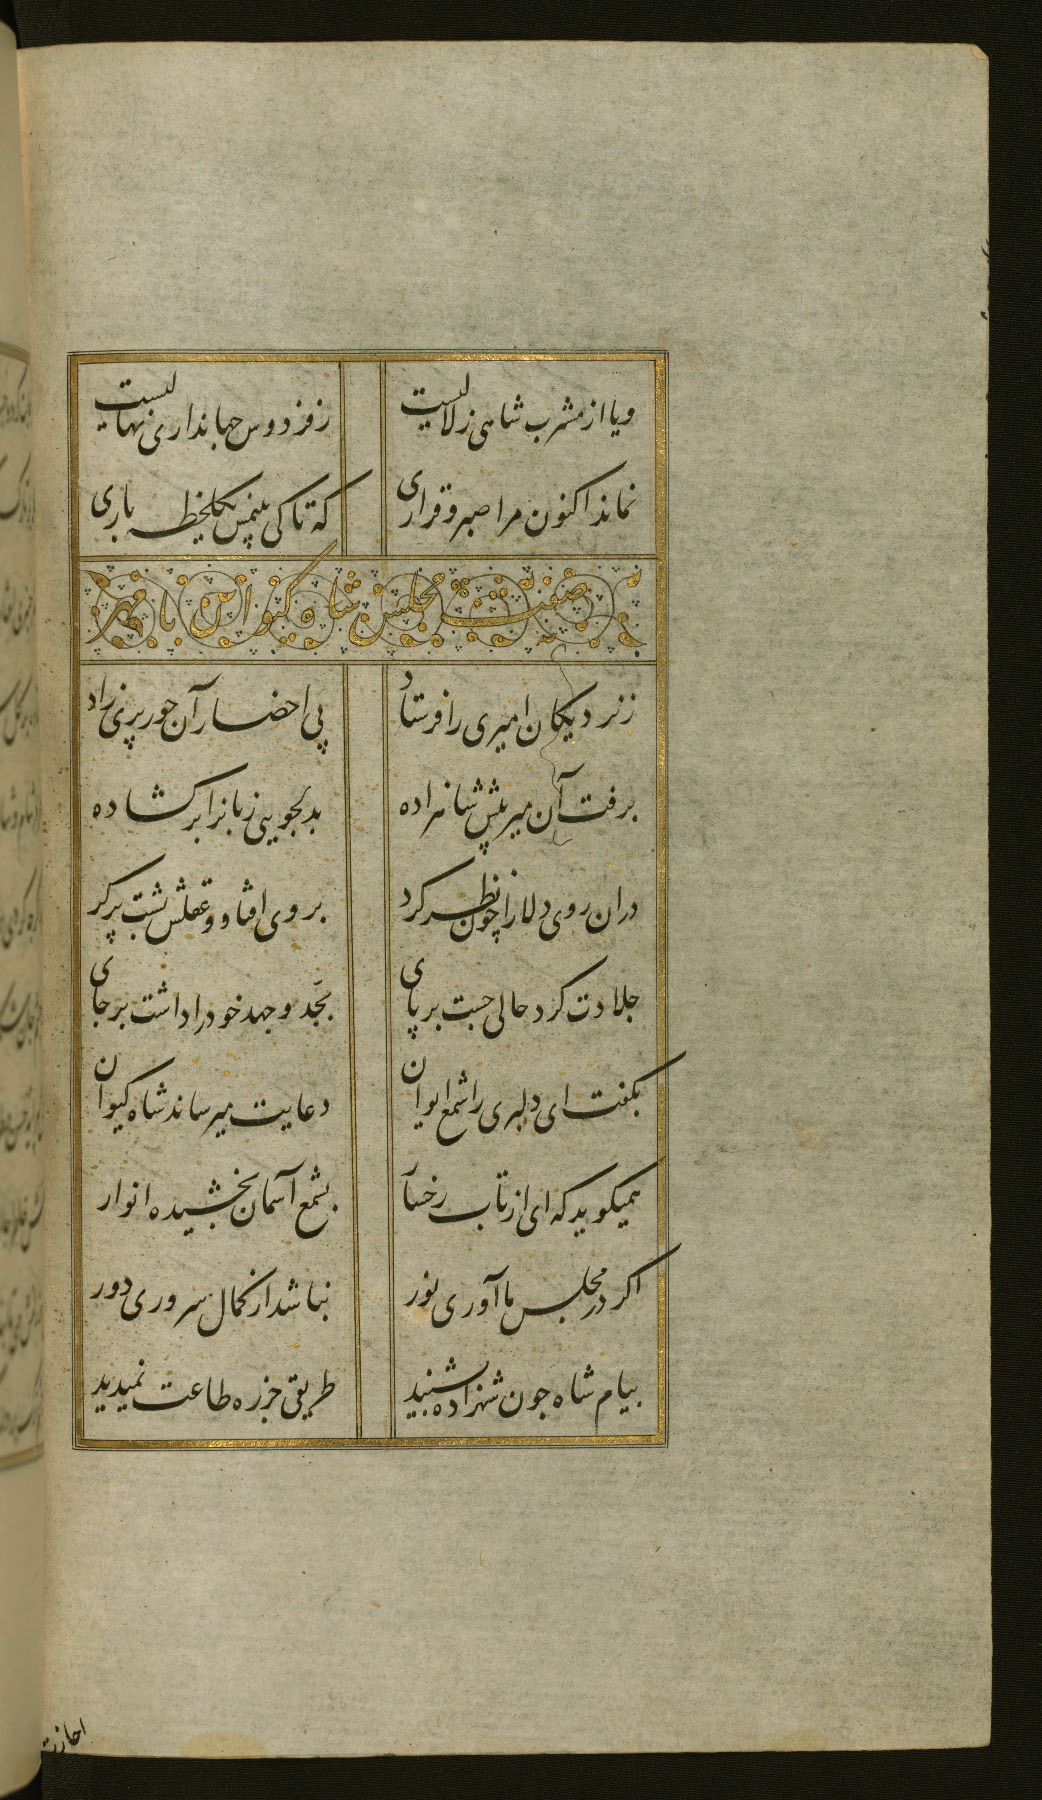 ویا از مشرب شاهی زلالیست
ز فردوس جهانداری نهالیست
نماند اکنون مرا صبر و قراری
که تا کی بینمش یکلحظه باری
صفت مجلس شاه کیوان با مهر
ز نزدیکان امیری را فرستاد
پی احضار آن حور پری زاد
برفت آن میر پیش شاهزاده
بدلجویی زبانرا بر کشاده
در ان روی دلارا چون نظر کرد
بروی افتاد و عقلش پشت بر کرد
جلادت کرد حالی جست بر پای
بجّد و جهد خود را داشت بر جای
بکفت ای دلبری را شمع ایوان
دعایت میرساند شاه کیوان
همیکوید که ای از تاب رخسار
بشمع آسمان بخشیده انوار
اکر در مجلس ما آوری نور
نباشد از کمال سروری دور
پیام شاه چون شهزاده بشنید
طریقی جز ره طاعت نمیدید
اجازت